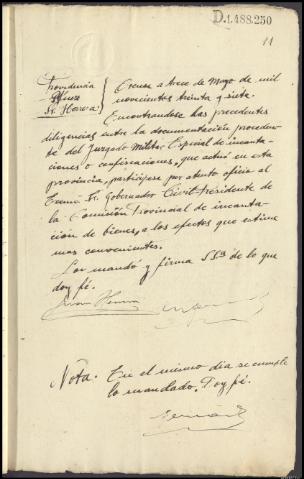 D.1.488.250
11
Providencia
Juez
Sr. Herrera
Orense a trece de Mayo de mil
novecientos treinta y siete.
Encontrandose las precedentes
diligencias entre la documentación proceden-
te del Juzgado Militar Especial de incauta-
ciones o confiscaciones, que actuó en esta
provincia, participese por atento oficio al
Excmo. Sr. Gobernador Civil Presidente de
la Comisión Provincial de incauta-
ción de bienes, a los efectos que estime
mas convenientes.
Lo mandó y firma SSª de lo que
doy fé.
Nota. En el mismo dia se cumple
lo mandado. Doy fé.